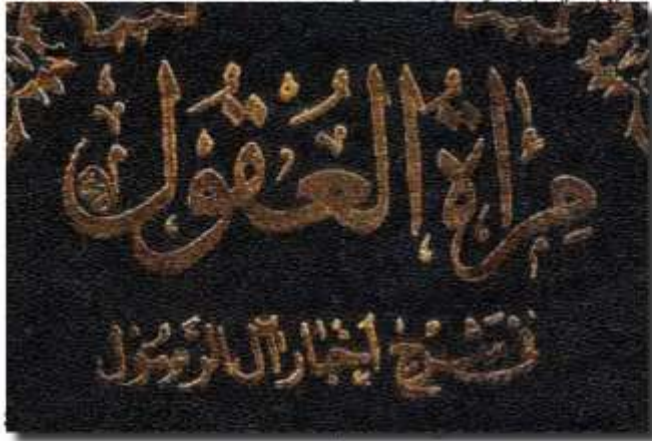 مرآة العقول
في شرح أخبار آل الرسول